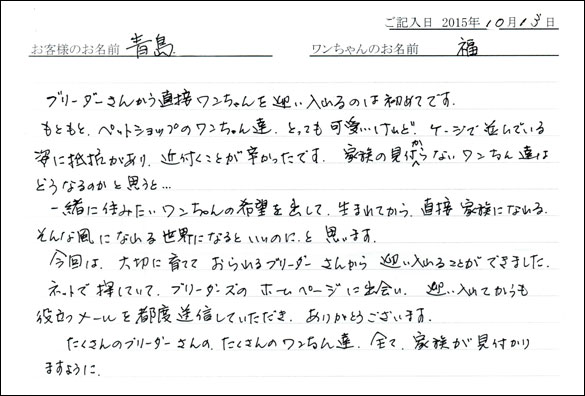 ご記入日 2015年10月13日
お客様のお名前 青島 ワンちゃんのお名前 福
ブリーダーさんから直接ワンちゃんを迎い入れるのは初めてです.
もともと、ペットショップのワンちゃん達、とっても可愛いけれど、ケージで並んでいる
姿に抵抗があり、近付くことが辛かったです. 家族の見付からないワンちゃん達は
どうなるのかと思うと…
一緒に住みたいワンちゃんの希望を出して、生まれてから、直接家族になれる、
そんな風になれる世界になるといいのに、と思います.
今回は、大切に育てておられるブリーダーさんから迎い入れることができました.
ネットで探していて、ブリーダーズのホームページに出会い、迎い入れてからも
役立つメールを都度送信していただき、ありがとうございます.
たくさんのブリーダーさんの、たくさんのワンちゃん達、全て、家族が見付かり
ますように.